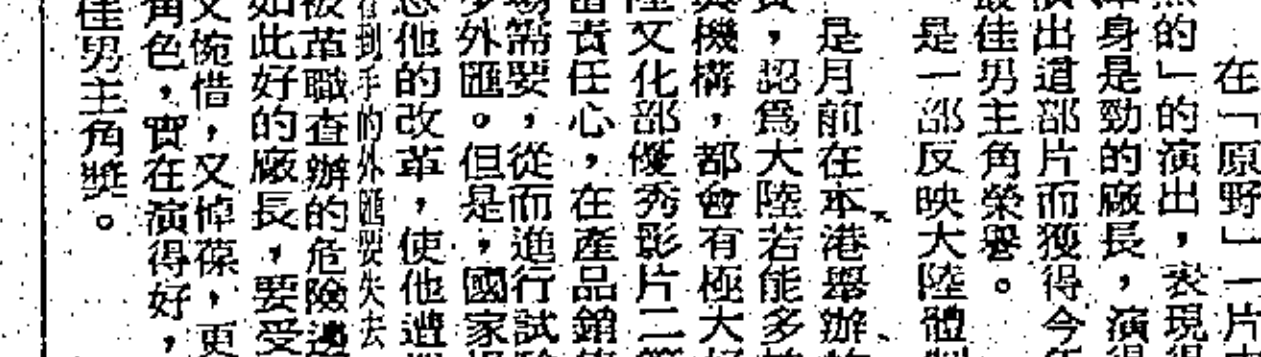 在「原野」一片
的」的演出，表現得
身是勁的廠長，演得
演出這部片而獲得今
最佳男主角榮譽。
是一部反映大陸體制
是月前在本港舉辦
，認爲大陸若能多
機構，都會有極大
文化部優秀影片二
責任心，在產品銷
場需要，從而進行試
外匯。但是，國家
他的改革，使他遭
到手的外匯要失去
被革職查辦的危險邊
如此好的廠長，要受
又惋惜，又悼葆，更
角色，實在演得好，
佳男主角獎。